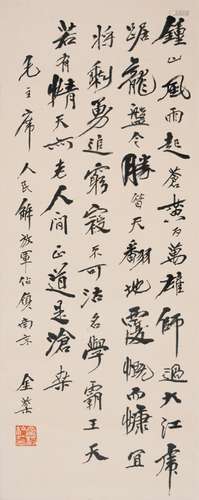 鍾山風雨起蒼黃百萬雄師過大江虎
踞龍盤今勝昔天翻地覆慨而慷宜
將剩勇追窮寇不可沽名學霸王天
若有情天亦老人間正道是滄桑
毛主席 人民解放軍佔領南京 金